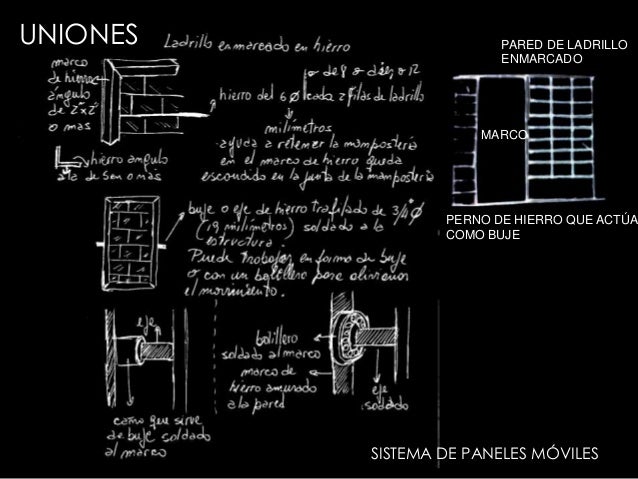 UNIONES
Ladrillo enmarcado en hierro
PARED DE LADRILLO
ENMARCADO
marco
de hierro
ángulo
de 2"x2"
o mas
o de 8 o de 10 o 12
hierro del 6 Ø cada 2 filas de ladrillo
milímetros
ayuda a retener la mampostería
en el marco de hierro queda
escondido en la junta de la mampostería
hierro angulo
ala de 5 cm o mas
MARCO
PERNO DE HIERRO QUE ACTÚA
COMO BUJE
buje o eje de hierro trafilado de 3/4" Ø
(19 milímetros) soldado a la
estructura.
Puede trabajar en forma de buje
o con un bolillero para alivianar
el movimiento.
eje
bolillero
soldado al marco
marco de
hierro amurado
a la pared
eje
soldado
caño que sirve
de buje soldado
al marco
SISTEMA DE PANELES MÓVILES